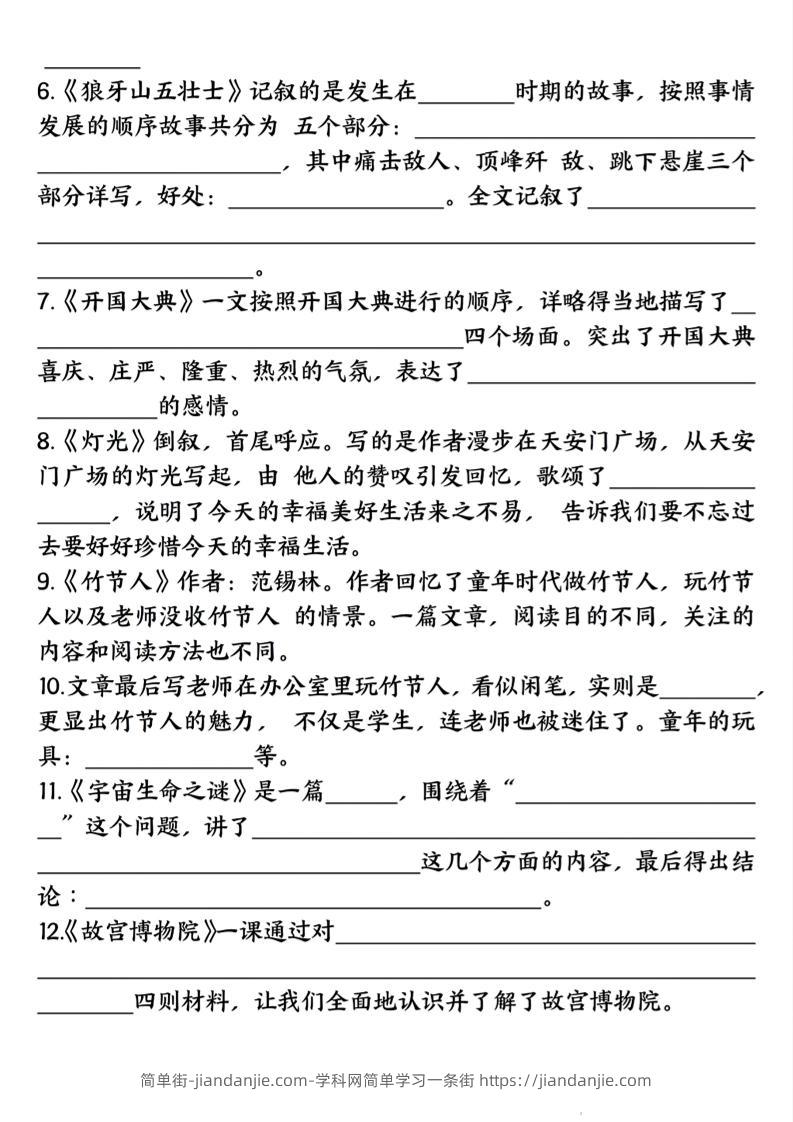 ________
6.《狼牙山五壮士》记叙的是发生在________时期的故事，按照事情
发展的顺序故事共分为 五个部分：____________________________
____________________，其中痛击敌人、顶峰歼 敌、跳下悬崖三个
部分详写，好处：__________________。全文记叙了______________
____________________________________________________________
__________________。
7.《开国大典》一文按照开国大典进行的顺序，详略得当地描写了__
____________________________________四个场面。突出了开国大典
喜庆、庄严、隆重、热烈的气氛，表达了________________________
__________的感情。
8.《灯光》倒叙，首尾呼应。写的是作者漫步在天安门广场，从天安
门广场的灯光写起，由 他人的赞叹引发回忆，歌颂了____________
______，说明了今天的幸福美好生活来之不易， 告诉我们要不忘过
去要好好珍惜今天的幸福生活。
9.《竹节人》作者：范锡林。作者回忆了童年时代做竹节人，玩竹节
人以及老师没收竹节人 的情景。一篇文章，阅读目的不同，关注的
内容和阅读方法也不同。
10.文章最后写老师在办公室里玩竹节人，看似闲笔，实则是________，
更显出竹节人的魅力， 不仅是学生，连老师也被迷住了。童年的玩
具：______________等。
11.《宇宙生命之谜》是一篇______，围绕着“____________________
__”这个问题，讲了__________________________________________
________________________________这几个方面的内容，最后得出结
论：______________________________________。
12.《故宫博物院》一课通过对___________________________________
____________________________________________________________
________四则材料，让我们全面地认识并了解了故宫博物院。
简单街-jiandanjie.com-学科网简单学习一条街 https://jiandanjie.com